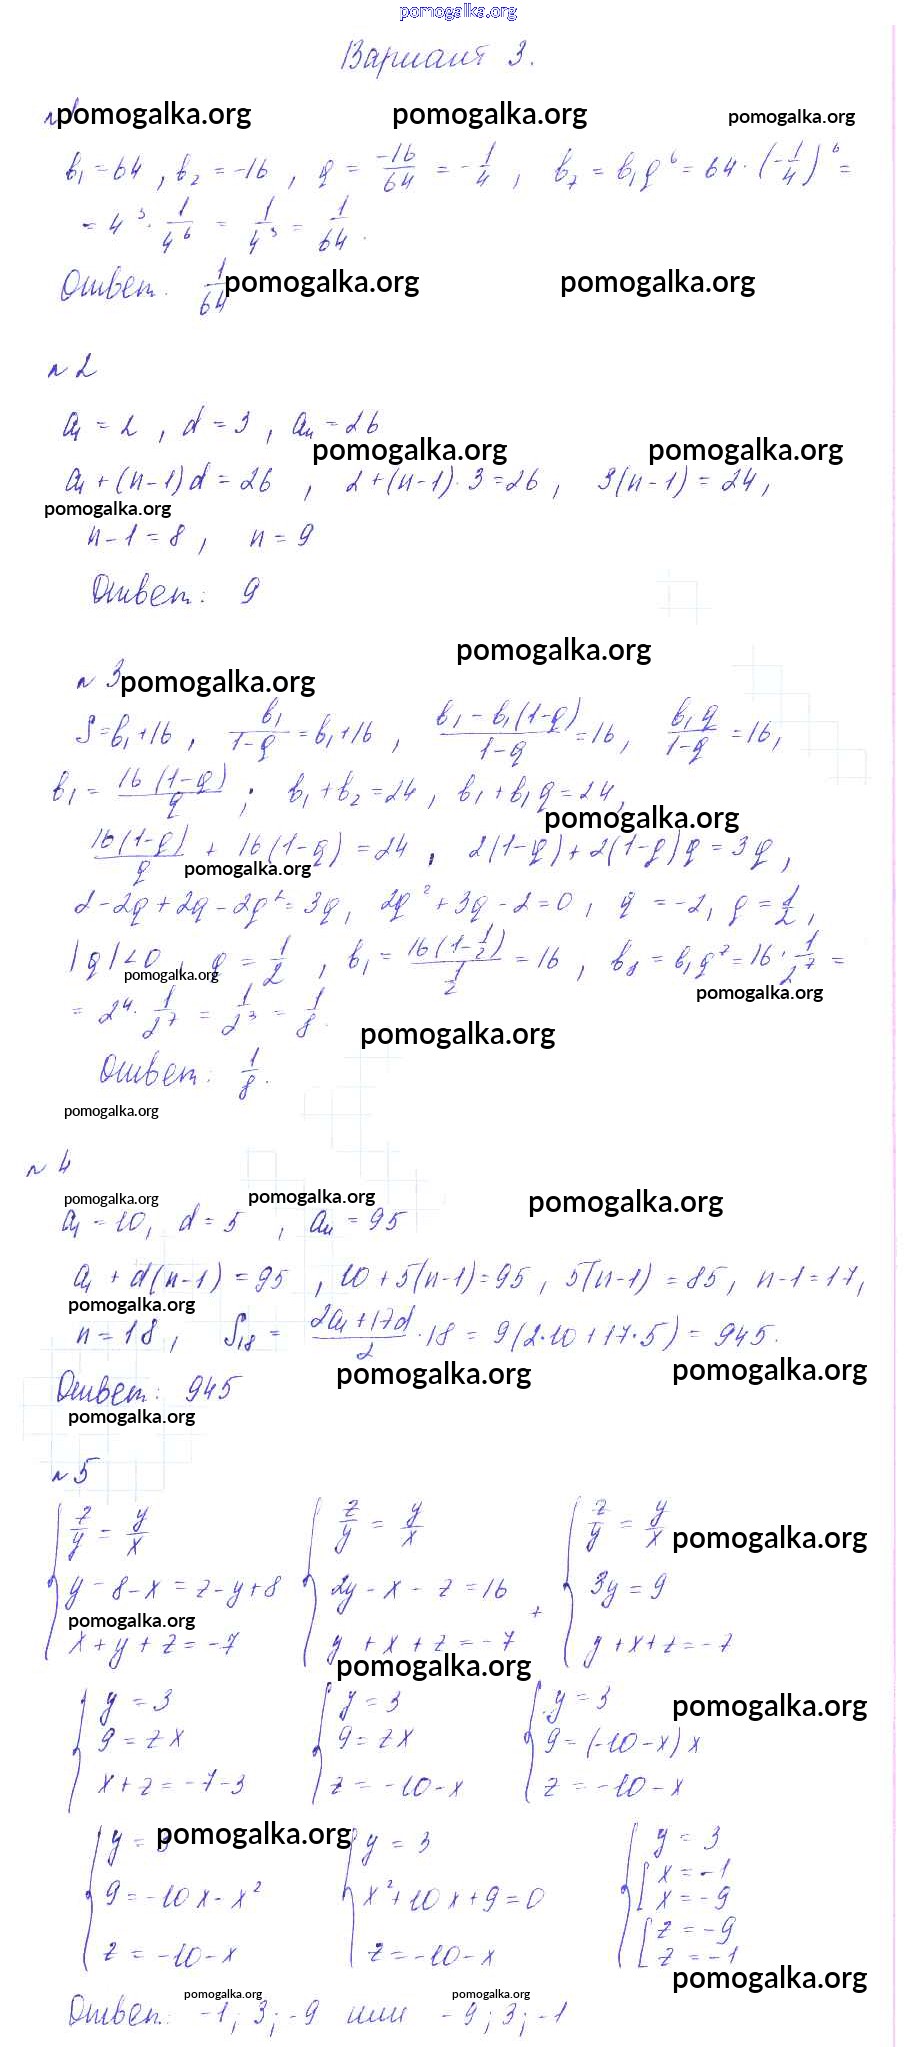 pomogalka.org
Вариант 3.
pomogalka.org pomogalka.org pomogalka.org
№1
b₁ = 64, b₂ = -16, q = -16/64 = -1/4, b₇ = b₁q⁶ = 64·(-1/4)⁶ =
= 4³·1/4⁶ = 1/4³ = 1/64.
Ответ. 1/64
pomogalka.org pomogalka.org
№2
a₁ = 2, d = 3, aₙ = 26
pomogalka.org pomogalka.org
a₁ + (n-1)d = 26, 2+(n-1)·3 = 26, 3(n-1) = 24,
pomogalka.org
n-1 = 8, n = 9
Ответ: 9
pomogalka.org
№3
pomogalka.org
S = b₁+16, b₁/(1-q) = b₁+16, (b₁-b₁(1-q))/(1-q) = 16, b₁q/(1-q) = 16,
b₁ = 16(1-q)/q; b₁+b₂ = 24, b₁+b₁q = 24,
pomogalka.org
16(1-q)/q + 16(1-q) = 24, 2(1-q)+2(1-q)q = 3q,
pomogalka.org
2-2q+2q-2q² = 3q, 2q²+3q-2 = 0, q = -2, q = 1/2,
|q|<0, q = 1/2, b₁ = 16(1-1/2)/(1/2) = 16, b₈ = b₁q⁷ = 16·1/2⁷ =
pomogalka.org pomogalka.org
= 2⁴·1/2⁷ = 1/2³ = 1/8.
pomogalka.org
Ответ: 1/8.
pomogalka.org
№4
pomogalka.org pomogalka.org pomogalka.org
a₁ = 10, d = 5, aₙ = 95
a₁+d(n-1) = 95, 10+5(n-1) = 95, 5(n-1) = 85, n-1 = 17,
pomogalka.org
n = 18, S₁₈ = (2a₁+17d)/2·18 = 9(2·10+17·5) = 945.
pomogalka.org pomogalka.org
Ответ: 945
pomogalka.org
№5
z/y = y/x z/y = y/x z/y = y/x
pomogalka.org
y-8-x = z-y+8 2y-x-z = 16 + 3y = 9
pomogalka.org
x+y+z = -7 y+x+z = -7 y+x+z = -7
pomogalka.org
y = 3 y = 3 y = 3
pomogalka.org
9 = zx 9 = zx 9 = (-10-x)x
x+z = -7-3 z = -10-x z = -10-x
pomogalka.org
y = 3 y = 3 y = 3
9 = -10x-x² x²+10x+9 = 0 x = -1
x = -9
z = -10-x z = -10-x z = -9
z = -1
pomogalka.org
pomogalka.org pomogalka.org
Ответ: -1; 3; -9 или -9; 3; -1